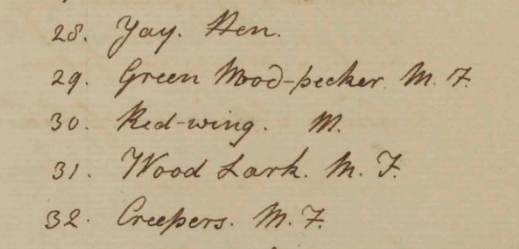 28. Jay. Hen.
29. Green Wood-pecker. M. F.
30. Red-wing. M.
31. Wood Lark. M. F.
32. Creepers. M. F.